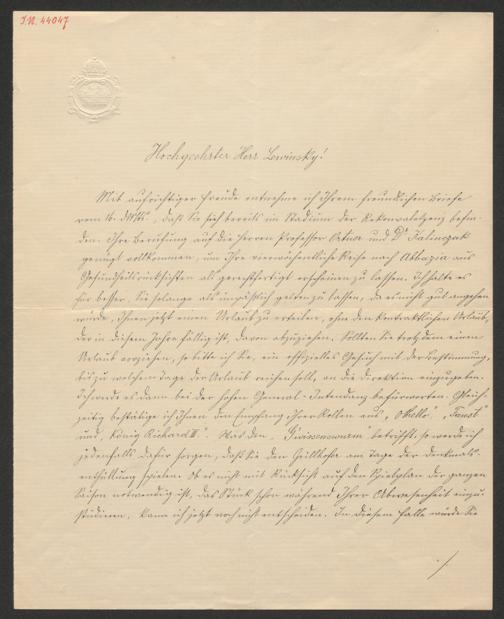 I.N. 44047
Hochgeehrter Herr Lewinsky!
Mit aufrichtiger Freude entnehme ich Ihrem freundlichen Briefe
vom 16. d. Mts., daß Sie sich bereits im Stadium der Rekonvaleszenz befin-
den. Ihre Berufung auf die Herren Professor Ortner und Dr. Kalinczuk
genügt vollkommen, um Ihre vierwöchentliche Reise nach Abbazia aus
Gesundheitsrücksichten als gerechtfertigt erscheinen zu lassen. Ich halte es
für besser, Sie solange als unpäßlich gelten zu lassen, da es nicht gut angehen
würde, Ihnen jetzt einen Urlaub zu erteilen, ohne den kontraktlichen Urlaub,
der in diesem Jahre fällig ist, davon abzuziehen. Sollten Sie trotzdem einen
Urlaub vorziehen, so bitte ich Sie, ein offizielles Gesuch mit der Bestimmung,
bis zu welchem Tage der Urlaub reichen soll, an die Direktion einzugeben.
Ich werde es dann bei der hohen General-Intendanz befürworten. Gleich-
zeitig bestätige ich Ihnen den Empfang Ihrer Rollen aus „Othello", „Faust"
und „König Richard II". Was den „G'wissenswurm" betrifft, so werde ich
jedenfalls dafür sorgen, daß Sie den Grillhofer am Tage der Denkmals-
enthüllung spielen. Ob es nicht mit Rücksicht auf den Spielplan der ganzen
Saison notwendig ist, das Stück schon während Ihrer Abwesenheit einzu-
studieren, kann ich jetzt noch nicht entscheiden. In diesem Falle würde Sie
./.